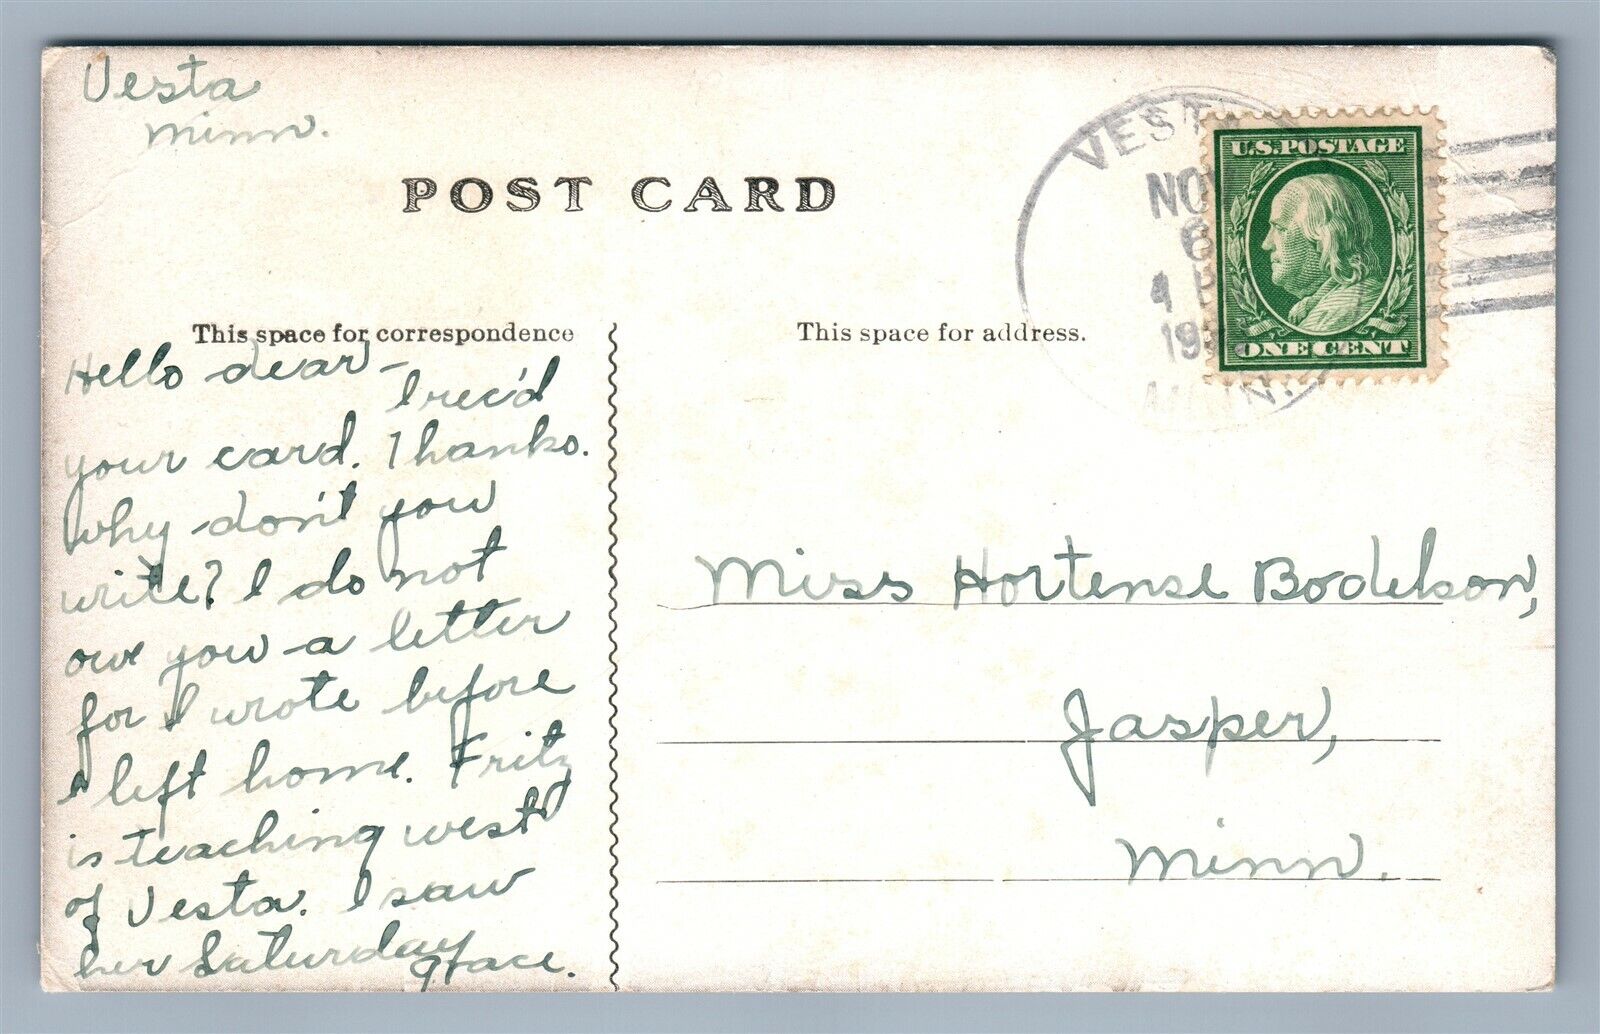 Vesta
Minn.
POST CARD
VEST
NO
6
1 P
19
MINN.
U.S. POSTAGE
ONE CENT
This space for correspondence
This space for address.
Hello dear-
I rec'd
your card. Thanks.
Why don't you
write? I do not
owe you a letter
for I wrote before
I left home. Fritz
is teaching west
of Vesta. I saw
her Saturday
Grace.
Miss Hortense Bodelson,
Jasper,
Minn.